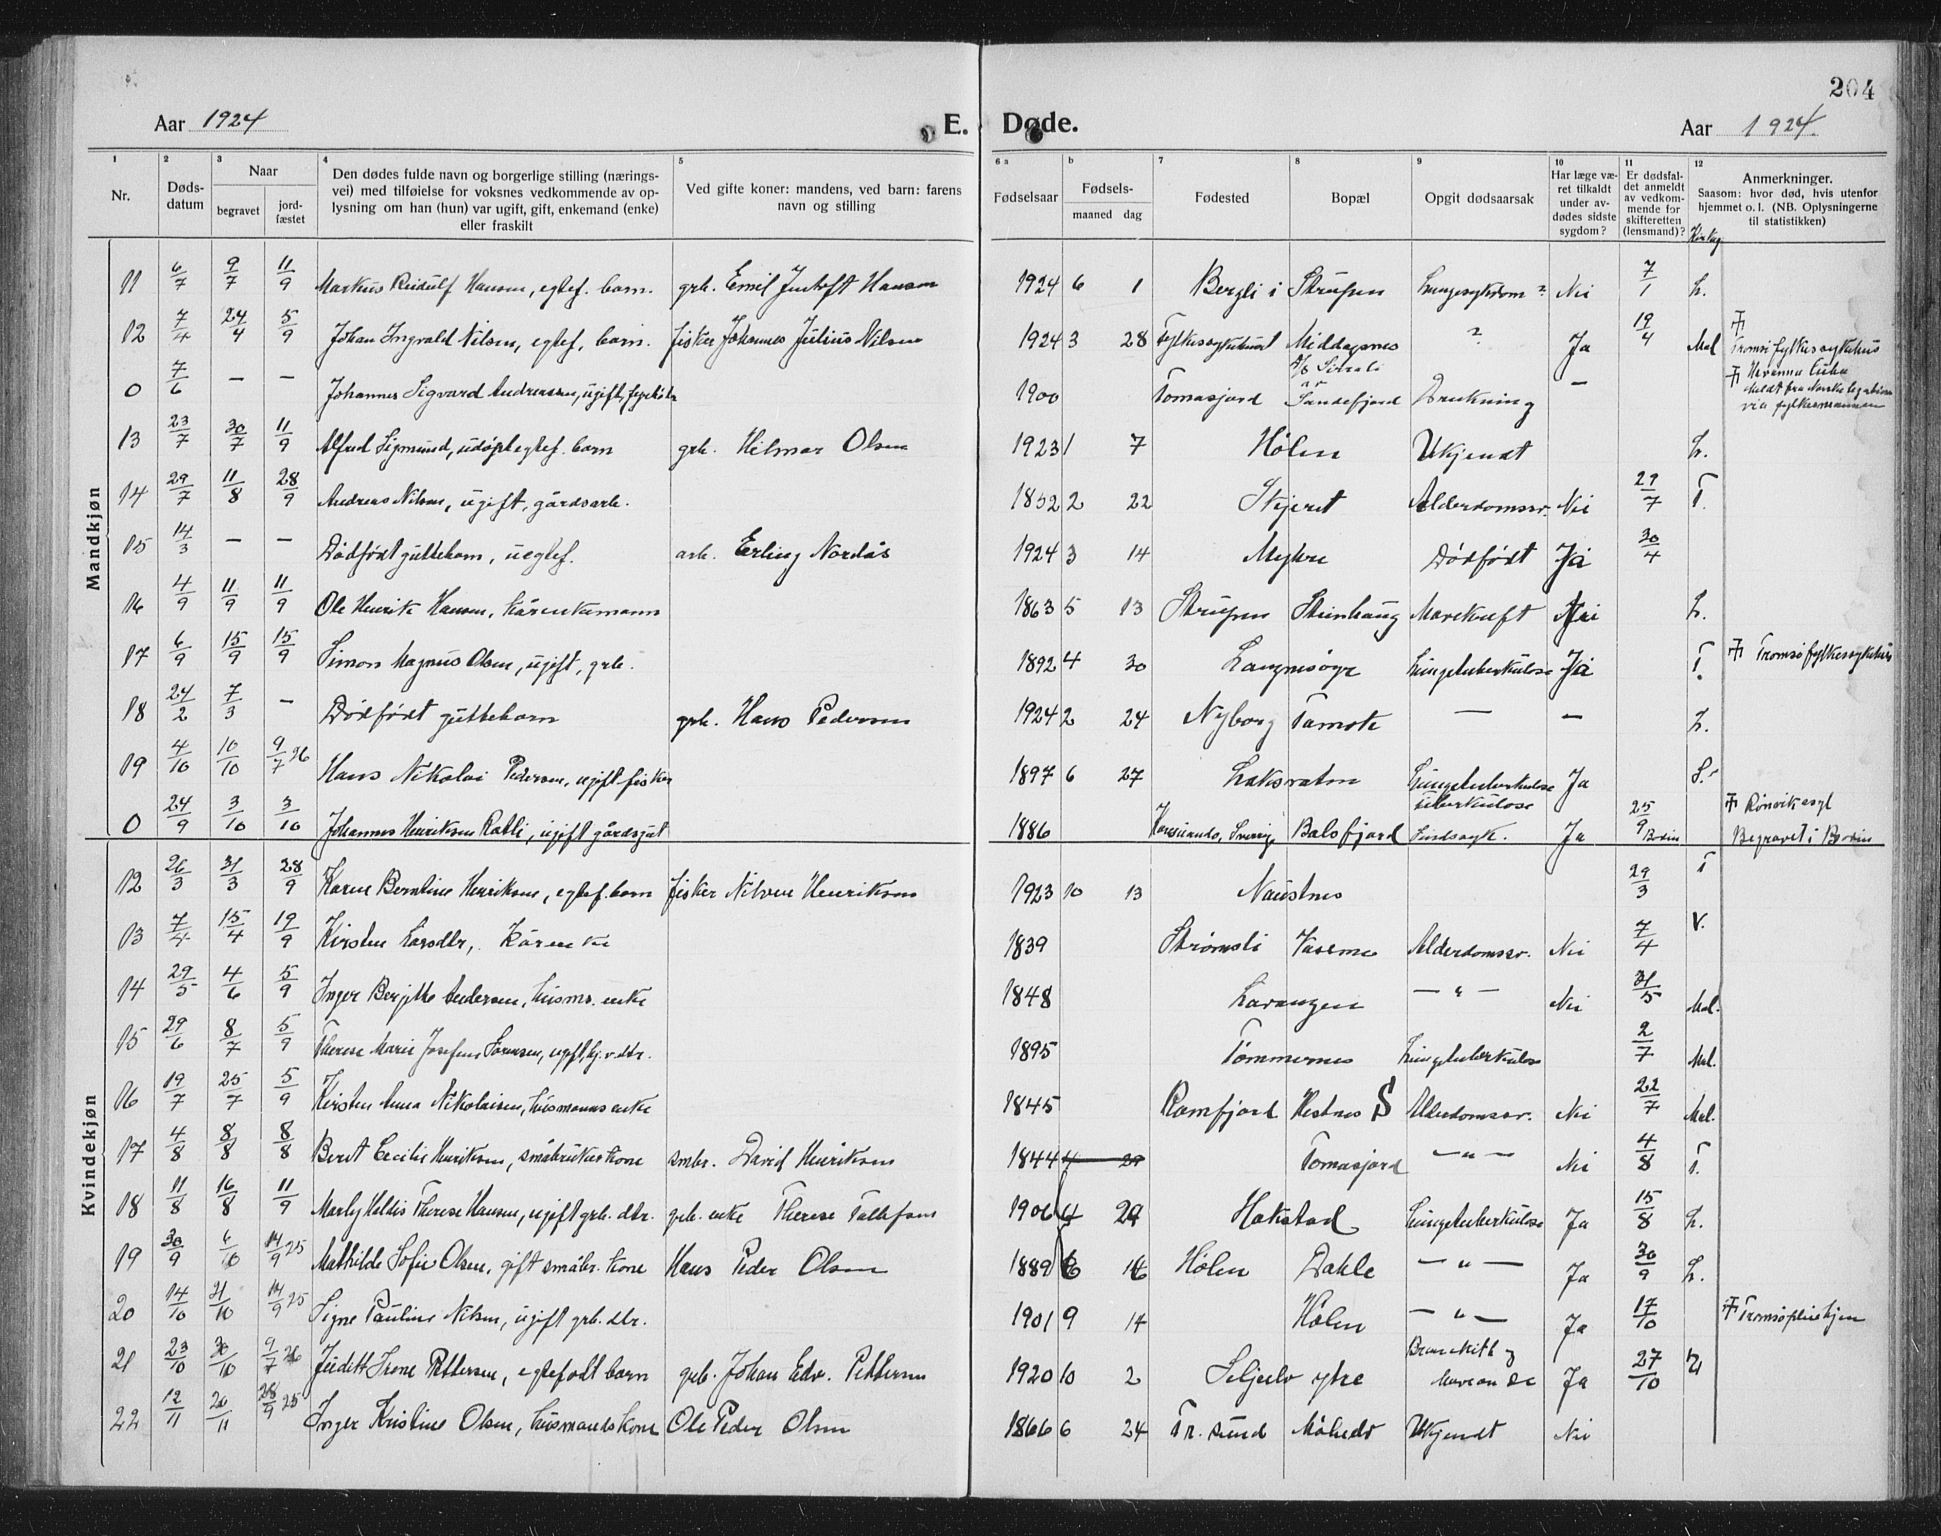 204
Aar 1924 E. Døde. Aar 1924.
1 2 3 4 5 6 a b 7 8 9 10 11 12
Nr.
Døds-
datum
Naar
begravet
jord-
fæstet
Den dødes fulde navn og borgerlige stilling (nærings-
vei) med tilføielse for voksnes vedkommende av op-
lysning om han (hun) var ugift, gift, enkemand (enke)
eller fraskilt
Ved gifte koner: mandens, ved barn: farens
navn og stilling
Fødselsaar
Fødsels-
maaned dag
Fødested
Bopæl
Opgit dødsaarsak
Har læge væ-
ret tilkaldt
under av-
dødes sidste
sygdom?
Er dødsfal-
det anmeldt
av vedkom-
mende for
skifteretten
(lensmand)?
Anmerkninger.
Saasom: hvor død, hvis utenfor
hjemmet o. l. (NB. Oplysningerne
til statistikken)
Mandkjøn
11 6/7 9/7 11/9 Markus Reidulf Hansen, egtef. barn. grb. Emil Hansen 1924 6 1 Bergli i Strupen Lungesykdom ? Nei 7/1 L.
12 7/4 24/4 5/9 Johan Ingvald Nilsen, egtef. barn. fisker Johannes Julius Nilsen 1924 3 28 Fylkessykehuset Middagsnes ? Ja 19/4 Mal Tromsø fylkessykehus
0 7/6 — — Johannes Sigvard Andreassen, ugift, 1900 Tomasjord Sandefjord Drukning — Havanna Cuba meldt fra Norske legation via fylkesmannen
13 23/7 30/7 11/9 Alfred Sigmund, udøpt egtef. barn grb. Hilmar Olsen 1923 1 7 Hølen Ukjendt L.
14 29/7 11/8 28/9 Andreas Nilsen, ugift, gårdsarb. 1832 2 22 Skjeret Alderdomssv. Nei 29/7 T.
15 14/3 — — Dødfødt guttebarn, uegtef. arb. Erling Nordås 1924 3 14 Mykre Dødfødt Ja 30/4
16 4/9 11/9 11/9 Ole Henrik Hansen, kårenkemann 1863 5 13 Strupen Steinhaug Mavekreft Nei L.
17 6/9 15/9 15/9 Simon Magnus Olsen, ugift, grb. 1892 4 30 Langnesøyr Lungetuberkulose Ja T. Tromsø fylkessykehus
18 24/2 7/3 — Dødfødt guttebarn grb. Hans Pedersen 1924 2 24 Nyborg Tamok — — L.
19 4/10 10/10 9/7 26 Hans Nikolai Pedersen, ugift fisker 1897 6 27 Laksvatn Lungetuberkulose Ja S.
0 24/9 3/10 3/10 Johannes Henriksen Rabli, ugift gårdsgut 1886 Karesuando, Sverrig Balsfjord tuberkulose Sindssyk. Ja 25/9 Bodin Rønvik asyl Begravet i Bodin
Kvindekjøn
12 26/3 31/3 28/9 Karen Berntine Henriksen, egtef. barn fisker Henriksen 1923 10 13 Naustnes 29/3 T
13 7/4 15/4 19/9 Kirsten Larsdtr, kårenke 1839 Strømsli Alderdomssv. Nei 7/4 V.
14 29/5 4/6 5/9 Inger Berjitte Andersen, husms. enke 1848 Lavangen — " — Nei 31/5 Mal.
15 29/6 8/7 5/9 Therese Marie Josefine Sørensen, ugift, 1895 Tømmernes Lungetuberkulose 2/7 Mal.
16 19/7 25/7 5/9 Kirsten Anna Nikolaisen, husmanns enke 1845 Ramfjord Hestnes S Alderdomssv. Nei 22/7 Mal.
17 4/8 8/8 8/8 Beret Cecilie Henriksen, småbrukerkone smbr. David Henriksen 1844 4 29 Tomasjord — " — Nei 4/8 T.
18 11/8 16/8 11/9 Marly Heldis Therese Hansen, ugift grb. dtr. grb. enke Therese Tollefsen 1906 4 29 Hakstad Lungetuberkulose Ja 15/8 L.
19 30/9 6/10 14/9 25 Mathilde Sofie Olsen, gift småbr. kone Hans Peder Olsen 1889 6 16 Hølen Dahle — " — Ja 30/9 L.
20 14/10 21/10 14/9 25 Signe Pauline Nilsen, ugift grb. dtr. 1901 9 14 Hølen — " — Ja 17/10 Tromsø pleiehjem
21 23/10 30/10 9/7 26 Judett Irene Pettersen, egtefødt barn grb. Johan Edv. Pettersen 1920 10 2 Seljelv ytre Ja 27/10
22 12/11 20/11 28/9 25 Inger Kristine Olsen, husmandskone Ole Peder Olsen 1866 6 24 Tr. sund Ukjendt Nei